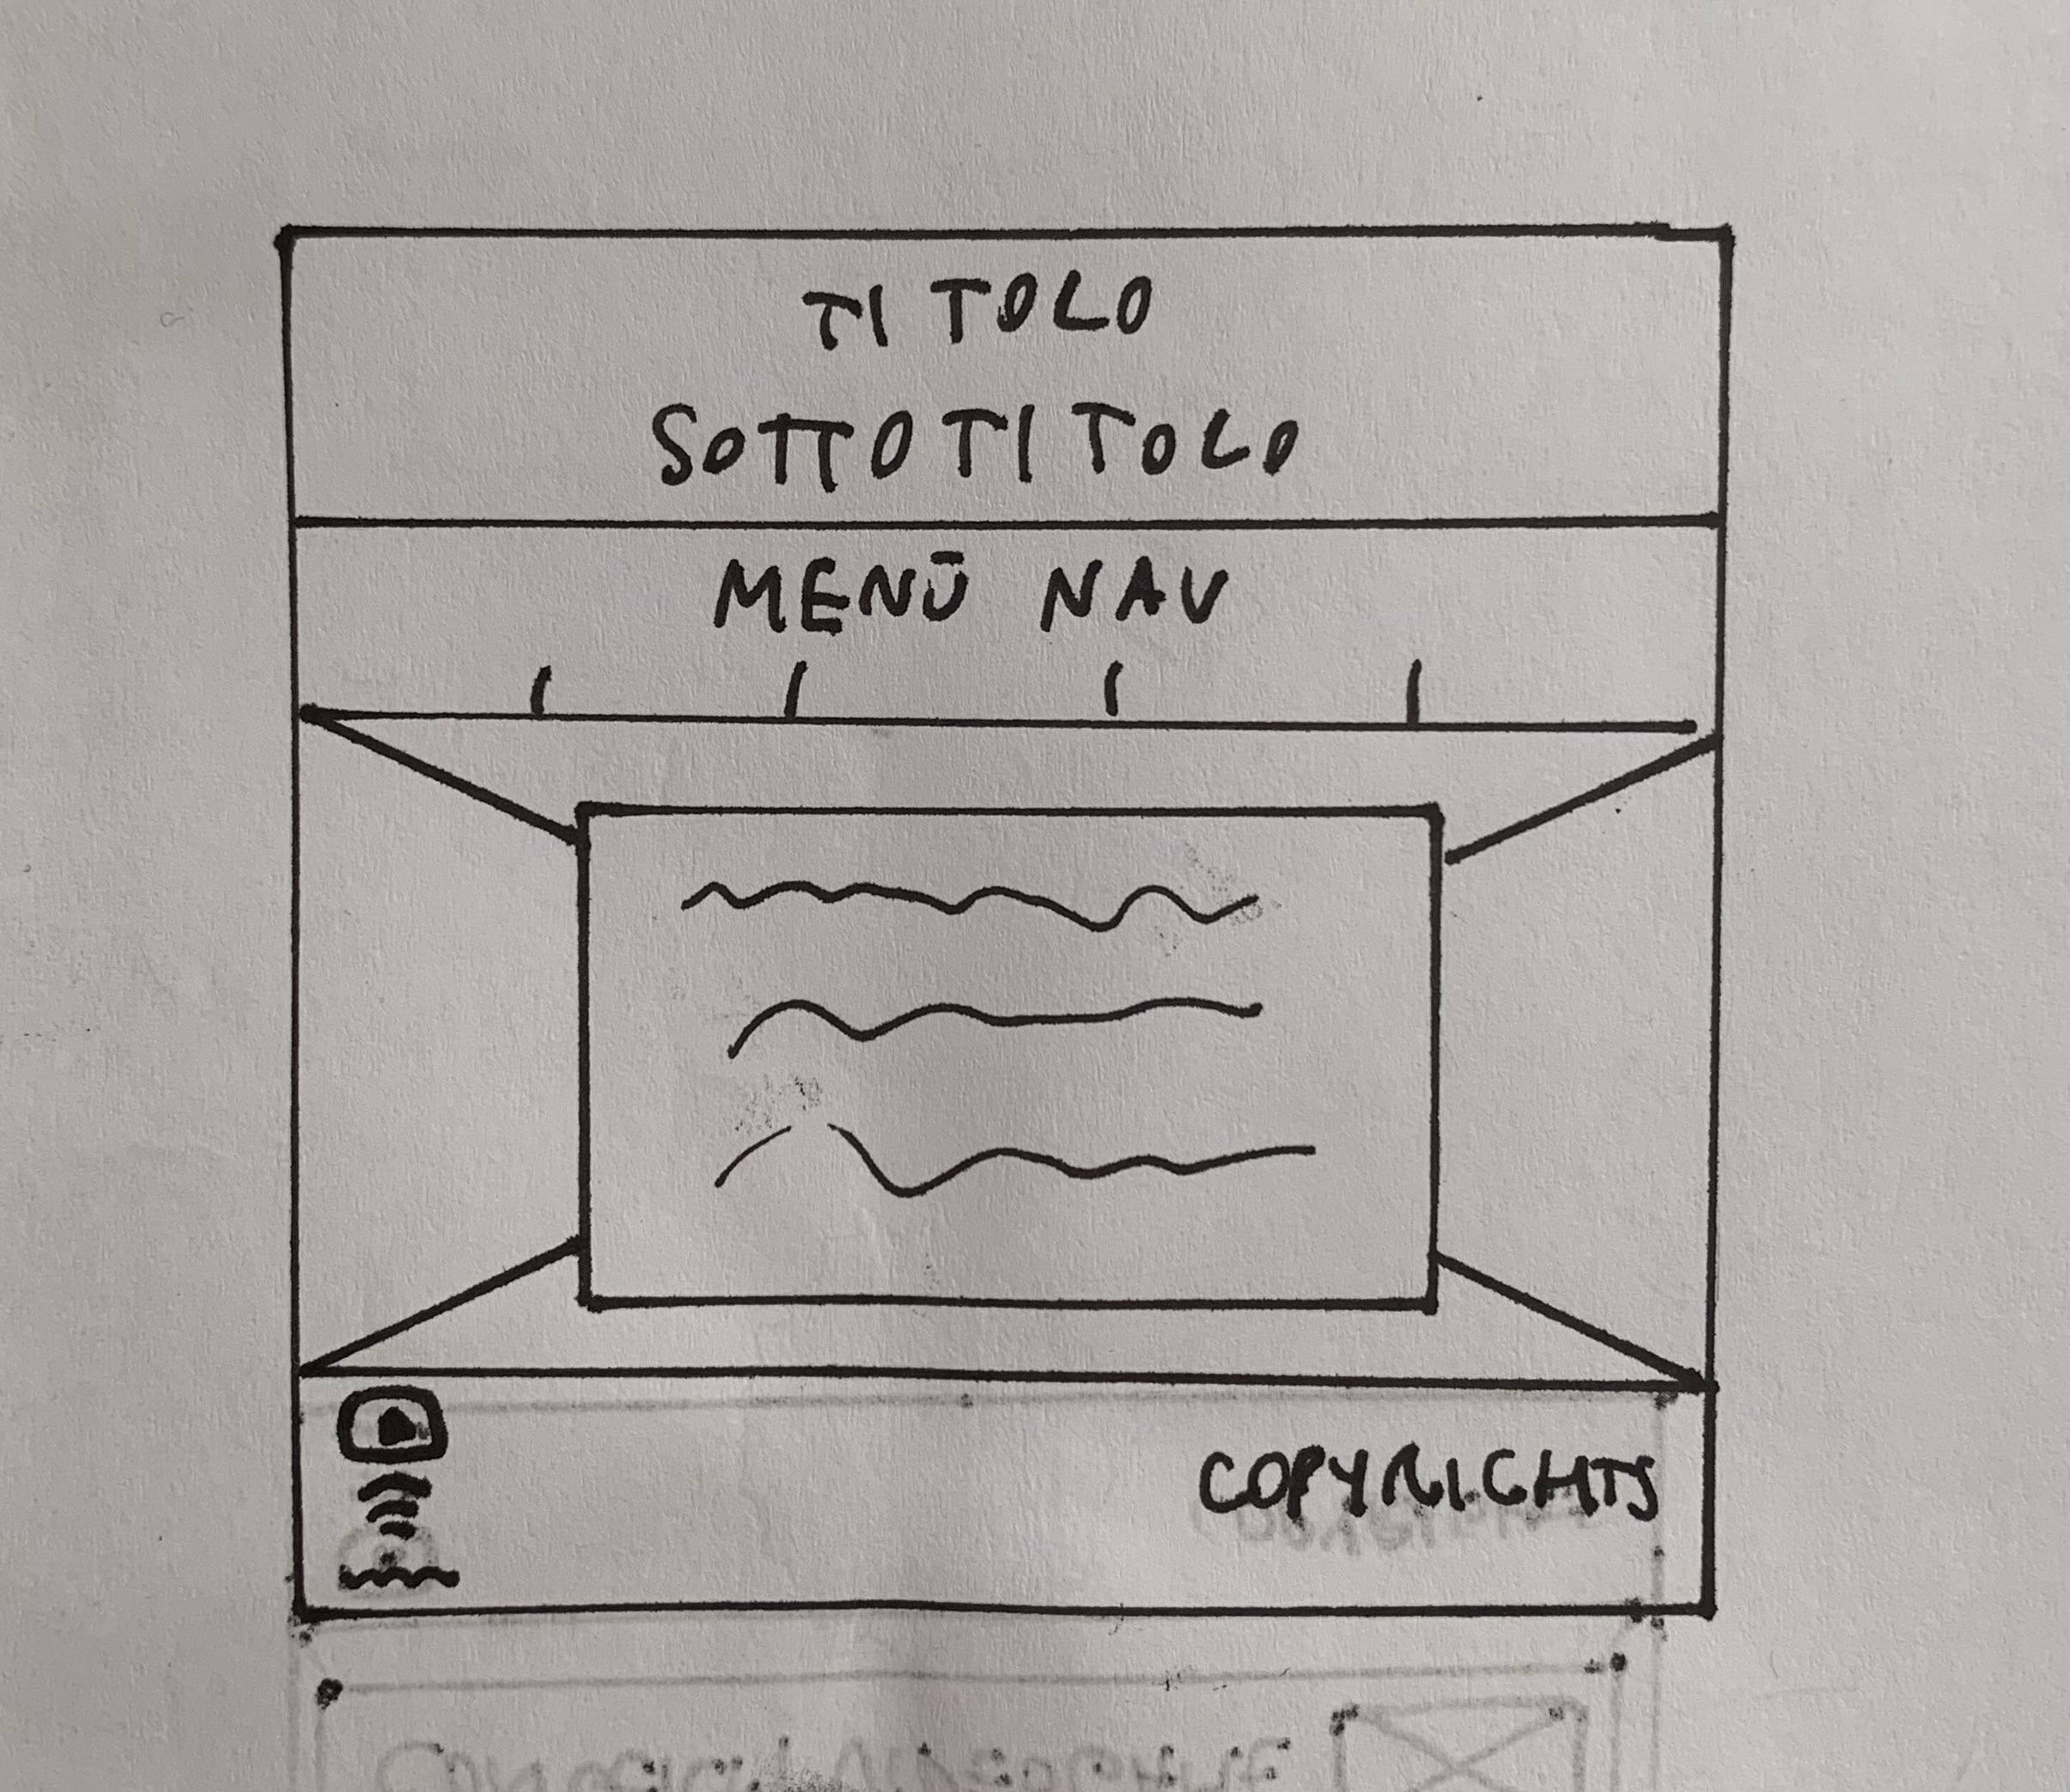 TITOLO
SOTTOTITOLO
MENŪ NAV
COPYRIGHTS